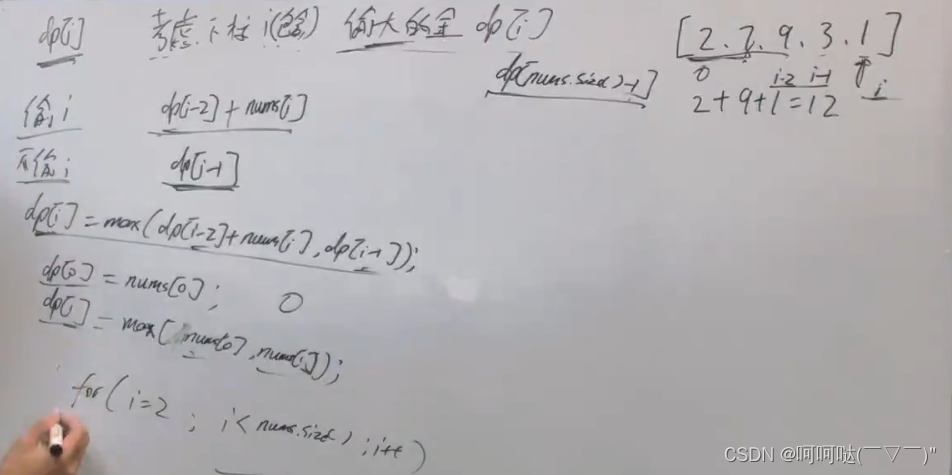 dp[i] 考虑下标i(包含) 偷大的金 dp[i]
[2.7.9.3.1]
dp[nums.size()-1]
0 i-2 i-1 i
2+9+1=12
偷i dp[i-2]+nums[i]
不偷i dp[i-1]
dp[i]=max(dp[i-2]+nums[i],dp[i-1]);
dp[0]=nums[0]; 0
dp[1]=max(nums[0],nums[1]);
for(i=2;i<nums.size();i++)
CSDN @呵呵哒(￣▽￣)"